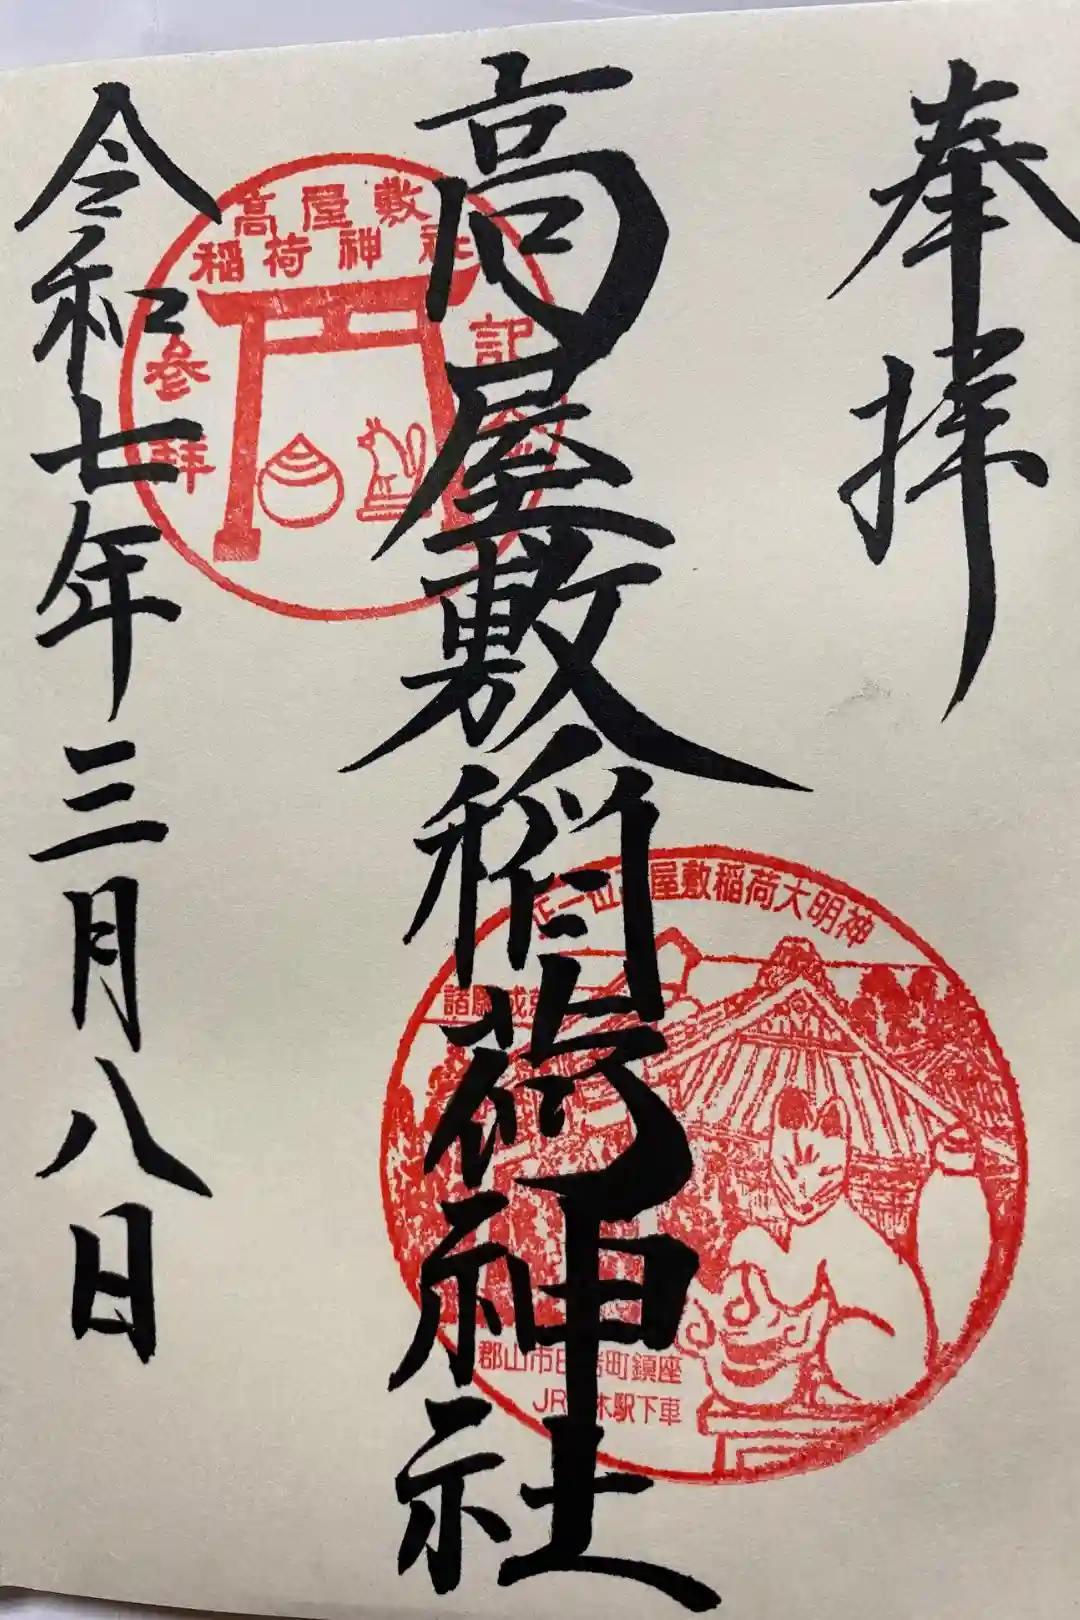 奉拝
高屋敷稲荷神社
令和七年三月八日
高屋敷
稲荷神社
参拝
記
正一位
屋敷稲荷大明神
諸願成
郡山市
町鎮座
JR
木駅下車